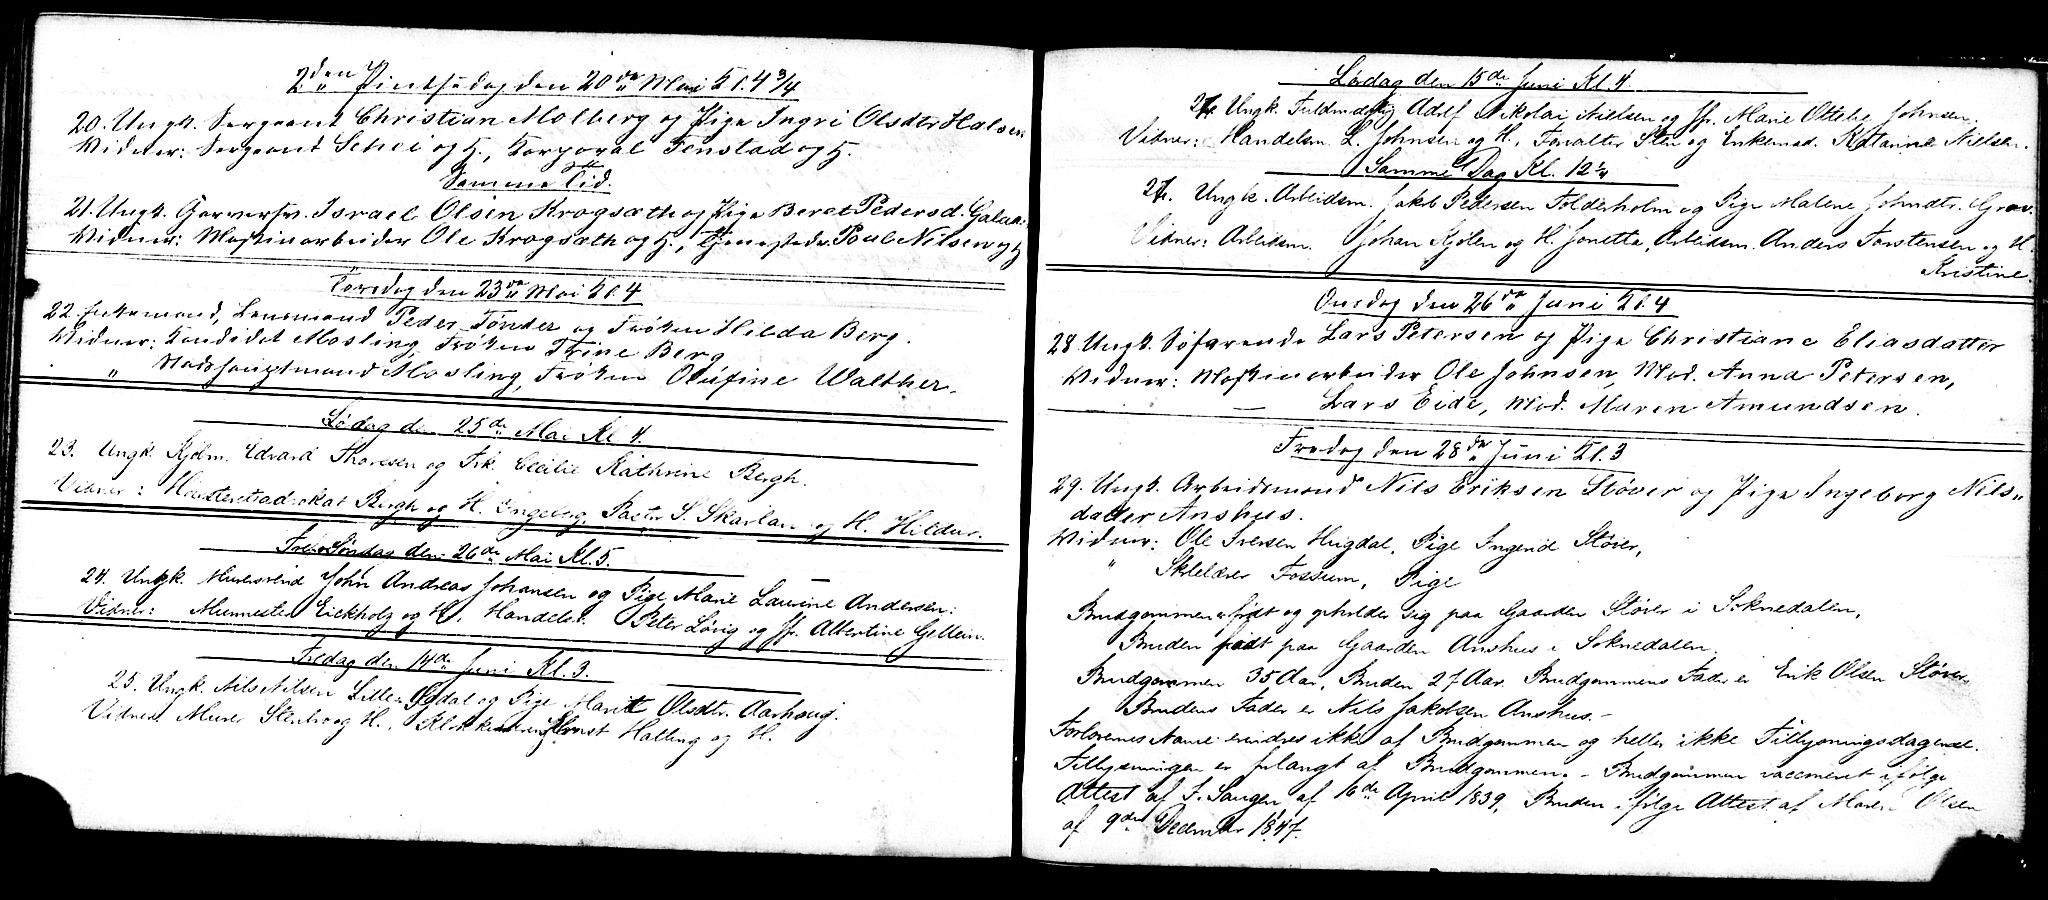 2den Pintsedag den 20de Mai Kl. 4 3/4
20. Ungk. Sergeant Christian Molberg og Pige Ingri Olsdtr Halsen
Vidner: Sergeant Schei og H., Korporal Fenstad og H.
Samme Tid.
21. Ungk. Garversv. Israel Olsen Krogsæth og Pige Beret Pedersd.
Vidner: Maskinarbeider Ole Krogsæth og H., Paul Nilsen og H
Torsdag den 23de Mai Kl. 4
22. Enkemand, Lensmand Peder Tønder og Frøken Hilda Berg.
Vidner: Kandidat Mosling, Frøken Trine Berg
" Mosling, Frøken Olufine Walther.
Lødag den 25de Mai Kl 4.
23. Ungk. Kjøbm. Edvard Thoresen og Frk. Cecilie Kathrine Bergh.
Vidner: Høiesteretsadvokat Bergh og H. Ingeborg, Pastor S. Skarland og H. Hildur.
Søndag den 26de Mai Kl. 5.
24. Ungk. Murersvend John Andreas Johansen og Pige Marie Laurine Andersen:
Vidner: Murmester Eickholz og H. Handelsb. Peter Løvig og Jfr. Albertine Gellein.
Fredag den 14de Juni Kl. 3.
25. Ungk. Nils Nilsen og Pige Marit Olsdtr. Aarhaug.
Vidner. Murer og H., Ernst Halling og H.
Lørdag den 15de Juni Kl. 4.
Ungk. Fuldmægtig Adolf Nikolai Nielsen og Jfr. Marie Ottelie Johnsen.
Vidner: Handelsm. L. Johnsen og H., Forvalter Sten og Enkemad. Nielsen.
Samme Dag Kl. 12½
27. Ungk. Arbeidsm. Jakob Pedersen Folderholm og Pige Malene Johndtr. Grav.
Vidner: Arbeidsm. Johan Kjølen og H. Jonetta, Arbeidsm. Anders Torstensen og H.
Kristine
Onsdag den 26de Juni Kl. 4
28 Ungk. Søfarende Lars Petersen og Pige Christiane Eliasdatter
Vidner: Maskinarbeider Ole Johnsen, Mad. Anna Petersen,
— Lars Eide, Mad. Maren Amundsen.
Fredag den 28de Juni Kl. 3
29. Ungk. Arbeidsmand Nils Eriksen Støver og Pige Ingeborg Nils„
datter Anshus.
Vidner: Ole Iversen Hugdal, Pige Ingerid Støver,
" Skolelærer Fossum, Pige
Brudgommen er født og opholder sig paa Gaarden Støver i Soknedalen,
Bruden født paa Gaarden Anshus i Soknedalen.
Brudgommen 35 Aar, Bruden 27 Aar. Brudgommens Fader er Erik Olsen Støver
Brudens Fader er Nils Jakobsen Anshus.-
Forlovernes Navne erindres ikke af Brudgommen og heller ikke Tillysningsdagene.
Tillysningen er forlangt af Brudgommen. - Brudgommen vaccineret ifølge
Attest af af 16de April 1839, Bruden ifølge Attest af Olsen
af 9de December 1847.